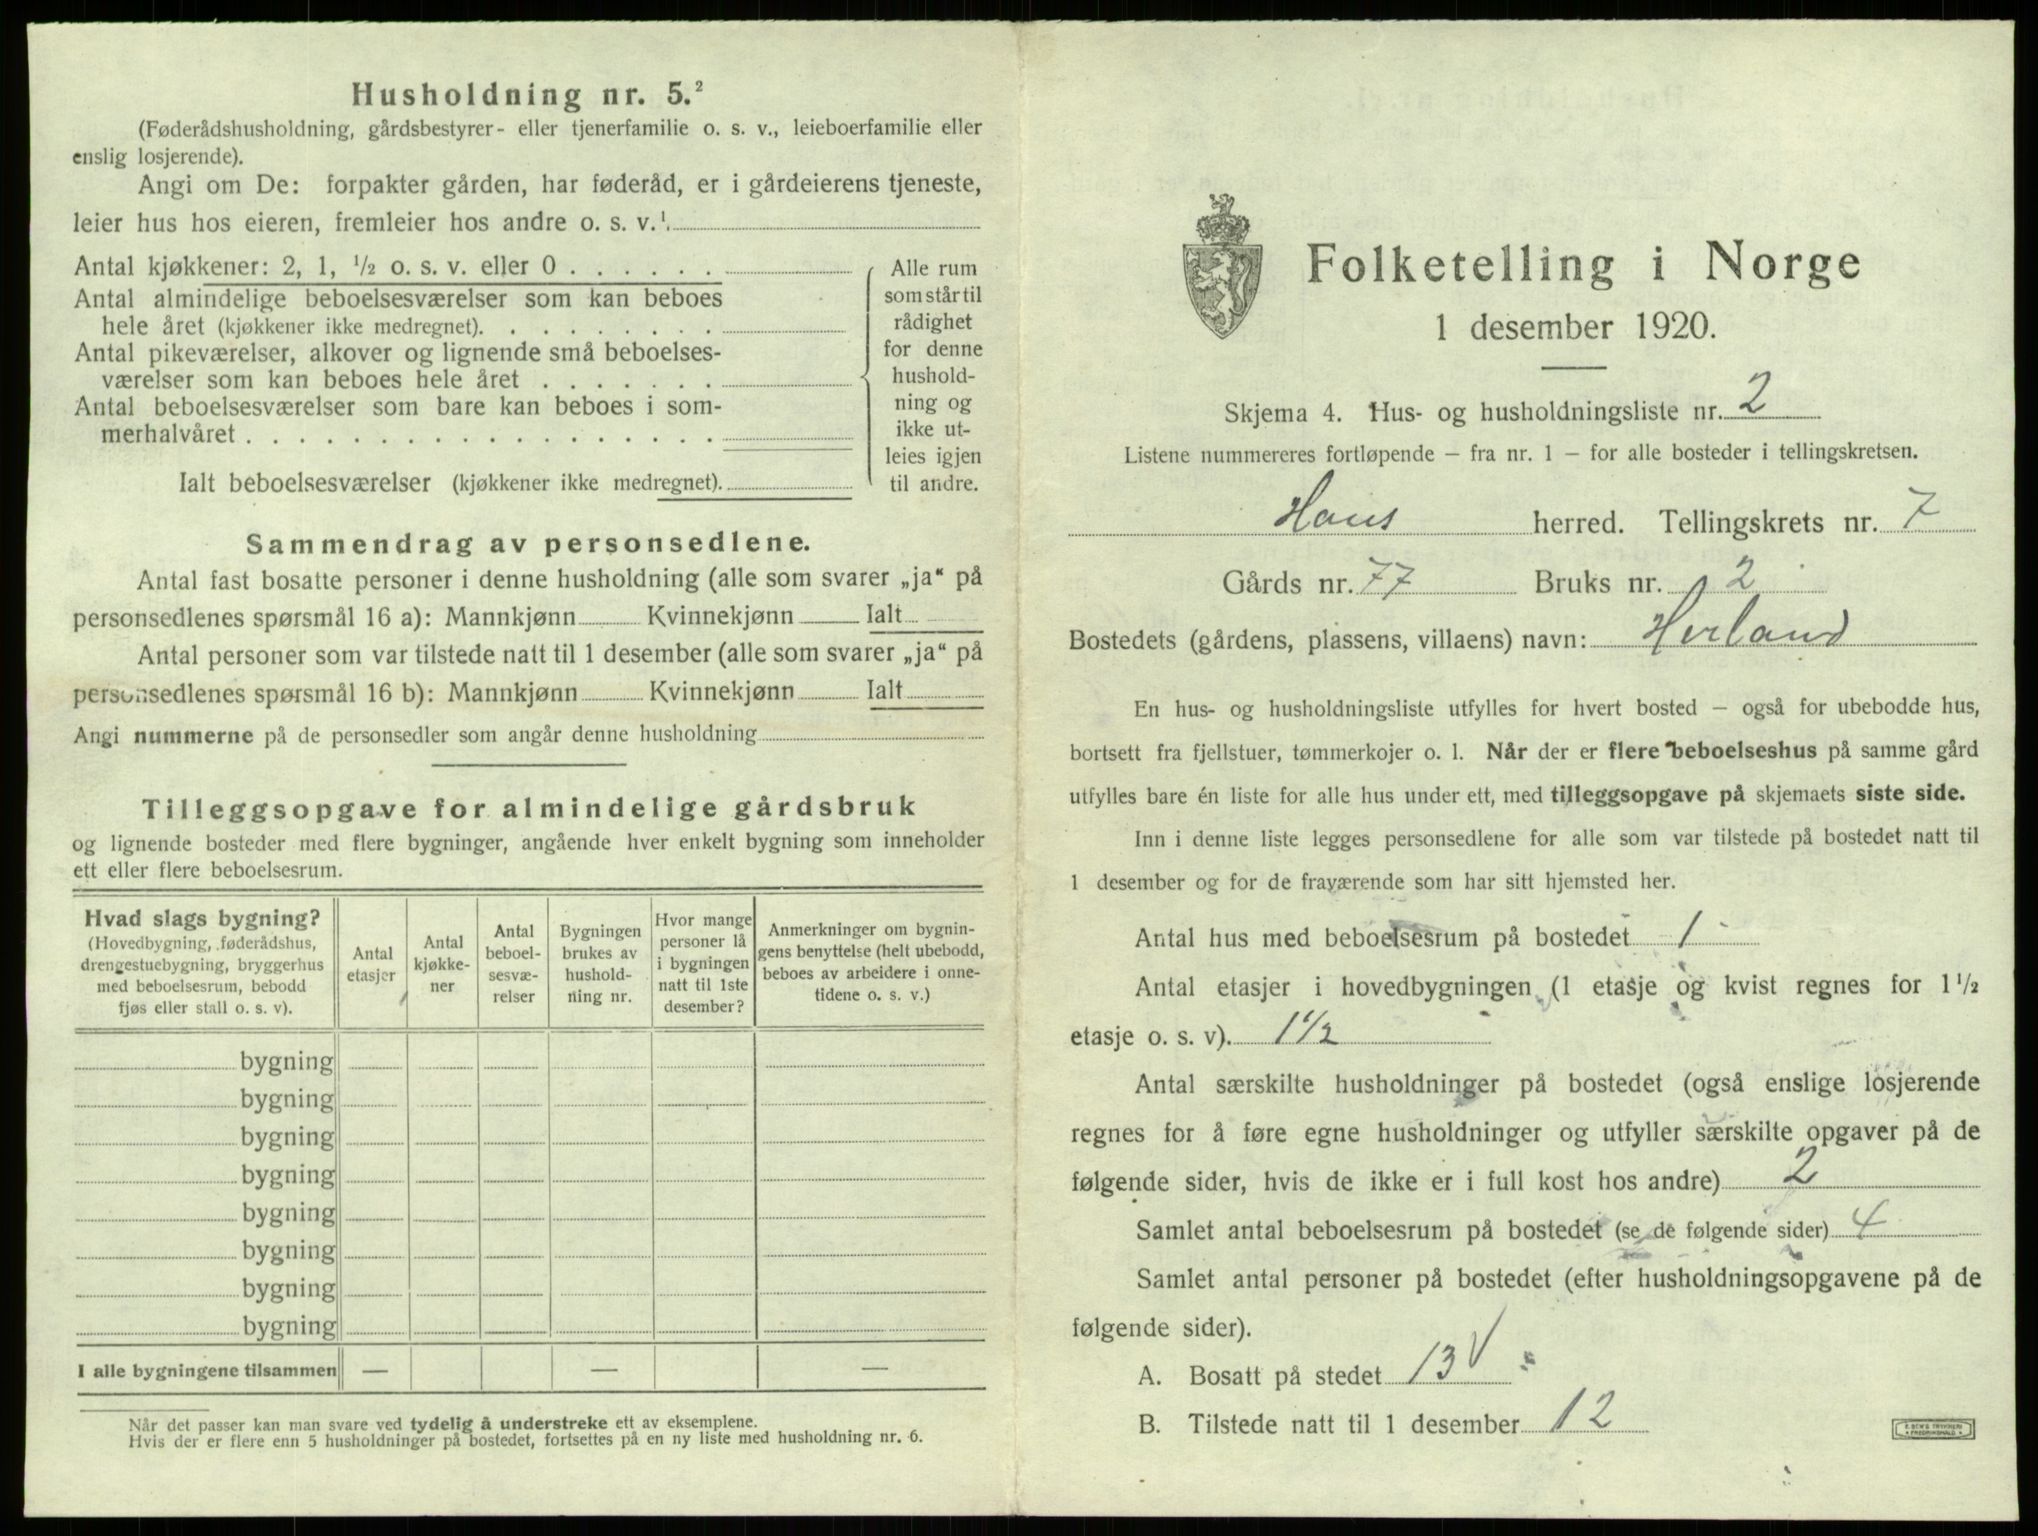 Husholdning nr. 5.²
(Føderådshusholdning, gårdsbestyrer- eller tjenerfamilie o. s. v., leieboerfamilie eller
enslig losjerende).
Angi om De: forpakter gården, har føderåd, er i gårdeierens tjeneste,
leier hus hos eieren, fremleier hos andre o. s. v.¹
Antal kjøkkener: 2, 1, 1/2 o. s. v. eller 0 . . . . . .
Antal almindelige beboelsesværelser som kan beboes
hele året (kjøkkener ikke medregnet). . . . . . . . .
Antal pikeværelser, alkover og lignende små beboelses-
værelser som kan beboes hele året . . . . . . .
Antal beboelsesværelser som bare kan beboes i som-
merhalvåret . . . . . . . . . . . . . . . . . .
Ialt beboelsesværelser (kjøkkener ikke medregnet).
Alle rum
som står til
rådighet
for denne
hushold-
ning og
ikke ut-
leies igjen
til andre.
Sammendrag av personsedlene.
Antal fast bosatte personer i denne husholdning (alle som svarer „ja“ på
personsedlenes spørsmål 16 a): Mannkjønn Kvinnekjønn Ialt
Antal personer som var tilstede natt til 1 desember (alle som svarer „ja“ på
personsedlenes spørsmål 16 b): Mannkjønn Kvinnekjønn Ialt
Angi nummerne på de personsedler som angår denne husholdning
Tilleggsopgave for almindelige gårdsbruk
og lignende bosteder med flere bygninger, angående hver enkelt bygning som inneholder
ett eller flere beboelsesrum.
Hvad slags bygning?
(Hovedbygning, føderådshus,
drengestuebygning, bryggerhus
med beboelsesrum, bebodd
fjøs eller stall o. s. v).
Antal
etasjer
Antal
kjøkke-
ner
Antal
beboel-
sesvæ-
relser
Bygningen
brukes av
hushold-
ning nr.
Hvor mange
personer lå
i bygningen
natt til 1ste
desember?
Anmerkninger om bygnin-
gens benyttelse (helt ubebodd,
beboes av arbeidere i onne-
tidene o. s. v.)
bygning
bygning
bygning
bygning
bygning
bygning
bygning
bygning
I alle bygningene tilsammen — — —
Når det passer kan man svare ved tydelig å understreke ett av eksemplene.
Hvis der er flere enn 5 husholdninger på bostedet, fortsettes på en ny liste med husholdning nr. 6.
Folketelling i Norge
1 desember 1920.
Skjema 4. Hus- og husholdningsliste nr. 2
Listene nummereres fortløpende — fra nr. 1 — for alle bosteder i tellingskretsen.
Haus herred. Tellingskrets nr. 7
Gårds nr. 77 Bruks nr. 2
Bostedets (gårdens, plassens, villaens) navn: Herland
En hus- og husholdningsliste utfylles for hvert bosted — også for ubebodde hus,
bortsett fra fjellstuer, tømmerkojer o. l. Når der er flere beboelseshus på samme gård
utfylles bare én liste for alle hus under ett, med tilleggsopgave på skjemaets siste side.
Inn i denne liste legges personsedlene for alle som var tilstede på bostedet natt til
1 desember og for de fraværende som har sitt hjemsted her.
Antal hus med beboelsesrum på bostedet 1
Antal etasjer i hovedbygningen (1 etasje og kvist regnes for 1 1/2
etasje o. s. v). 1 1/2
Antal særskilte husholdninger på bostedet (også enslige losjerende
regnes for å føre egne husholdninger og utfyller særskilte opgaver på de
følgende sider, hvis de ikke er i full kost hos andre) 2
Samlet antal beboelsesrum på bostedet (se de følgende sider) 4
Samlet antal personer på bostedet (efter husholdningsopgavene på de
følgende sider).
A. Bosatt på stedet 13 V
B. Tilstede natt til 1 desember 12